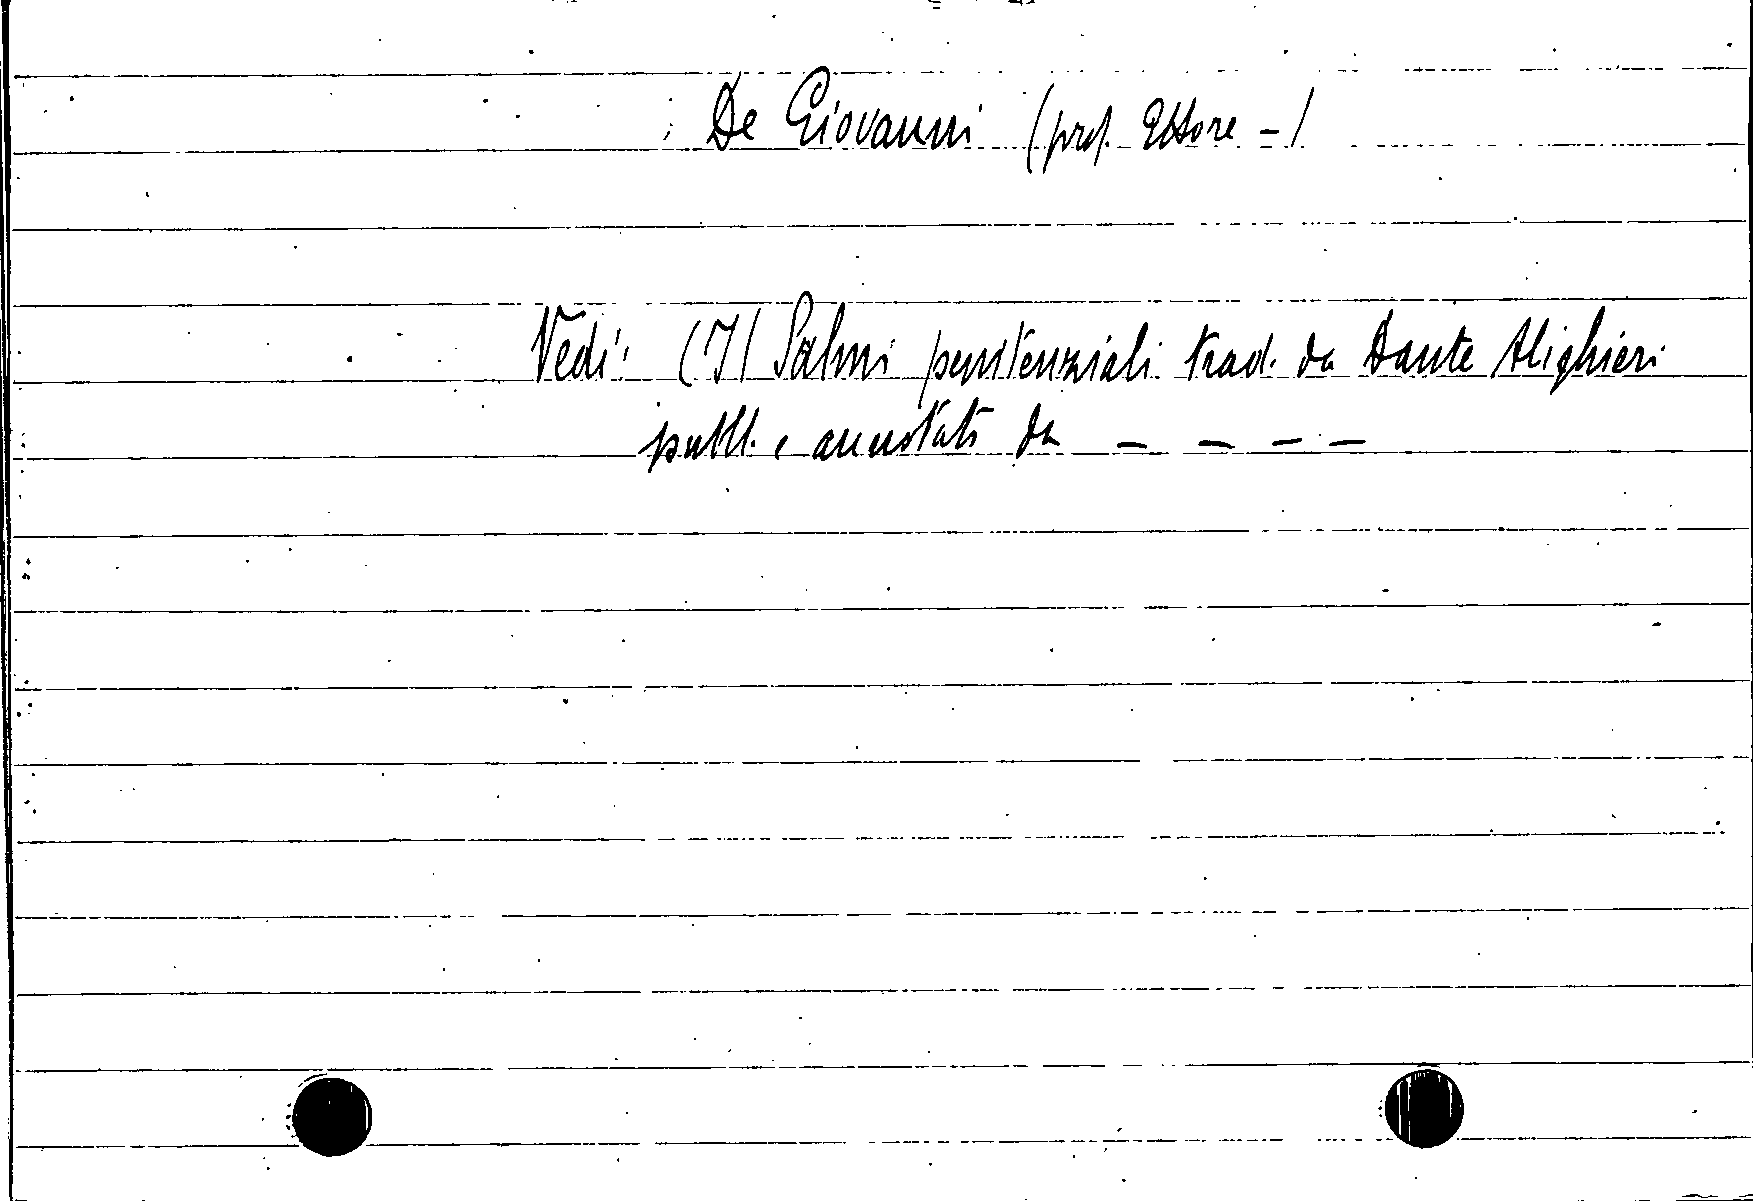 De Giovanni (prof. Ettore -)
Vedi: (I) Salmi penitenziali trad. da Dante Alighieri
pubbl. e annotati da - - - -